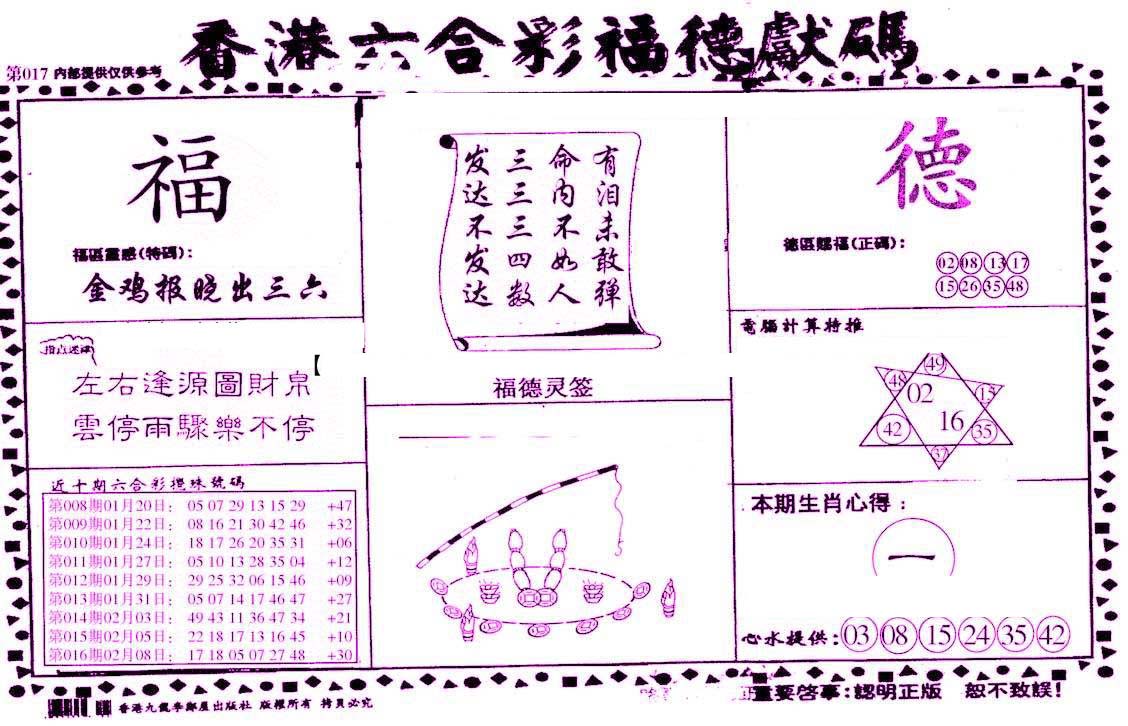 香港六合彩福德獻碼
第017 内部提供仅供参考
福
福區靈感(特碼):
金鸡报晓出三六
左右逢源圖財帛
雲停雨驟樂不停
近十期六合彩攪珠號碼
第008期01月20日: 05 07 29 13 15 29 +47
第009期01月22日: 08 16 21 30 42 46 +32
第010期01月24日: 18 17 26 20 35 31 +06
第011期01月27日: 05 10 13 28 35 04 +12
第012期01月29日: 29 25 32 06 15 46 +09
第013期01月31日: 05 07 14 17 46 47 +27
第014期02月03日: 49 43 11 36 47 34 +21
第015期02月05日: 22 18 17 13 16 45 +10
第016期02月08日: 17 18 05 07 27 48 +30
有泪未敢弹
命内不如人
三三三四数
发达不发达
福德灵签
德
德區賜福(正碼):
02 08 13 17
15 26 35 48
電腦計算特推
49
48 02 15
16
42 35
37
本期生肖心得:
一
心水提供: 03 08 15 24 35 42
重要啓事:認明正版 恕不致誤!
版權所有 拷貝必究